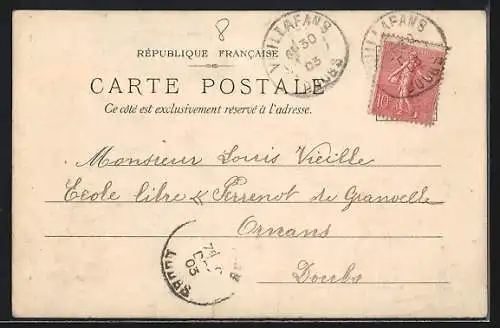 8
RÉPUBLIQUE FRANÇAISE
CARTE POSTALE
Ce côté est exclusivement réservé à l'adresse.
VUILLAFANS
30
03
DOUBS
VUILLAFANS
DOUBS
10
Monsieur Louis Vieille
Ecole libre Perrenot de Granvelle
Ornans
Doubs
DOUBS
03